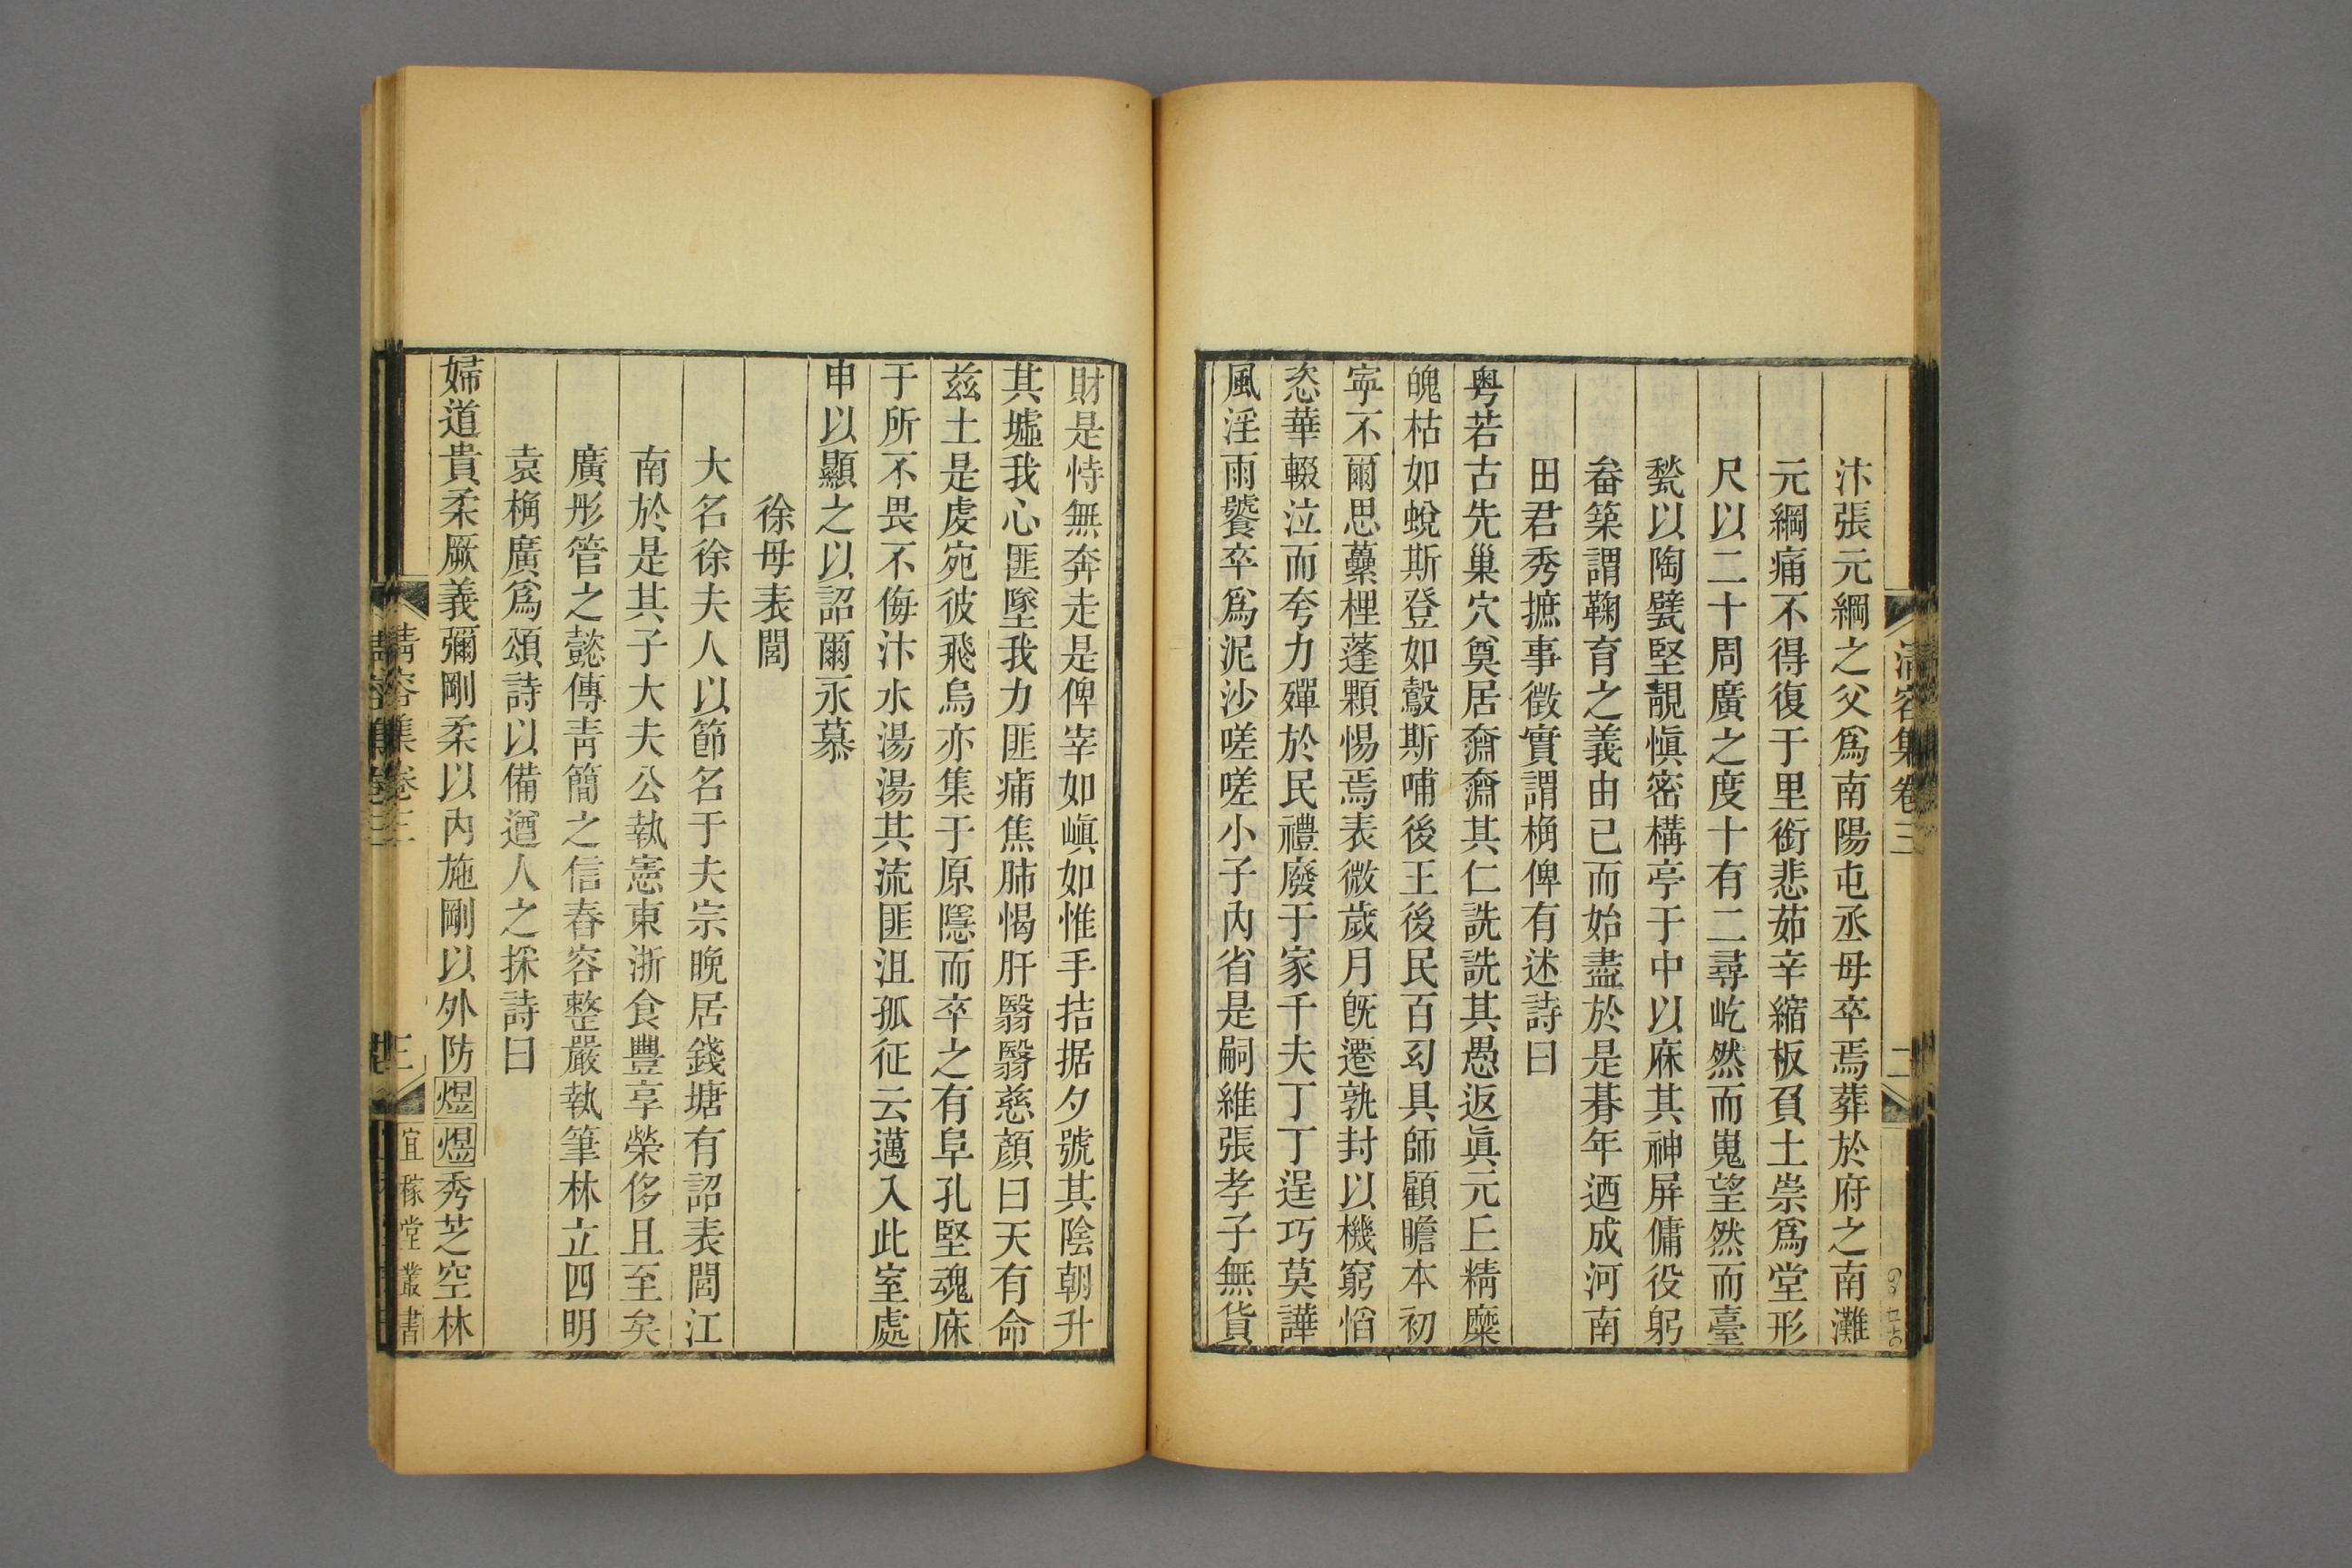 汴張元綱之父爲南陽屯丞母卒焉葬於府之南灘
元綱痛不得復于里銜悲茹辛縮板負土崇爲堂形
尺以二十周廣之度十有二尋屹然而嵬望然而臺
甃以陶甓堅靚愼密構亭于中以庥其神屏傭役躬
畚築謂鞠育之義由己而始盡於是朞年迺成河南
田君秀摭事徵實謂桷俾有述詩曰
粤若古先巢穴奠居奫奫其仁詵詵其愚返眞元丘精糜
魄枯如蛻斯登如鷇斯哺後王後民百刓具師顧瞻本初
寧不爾思虆梩蓬顆惕焉表微歲月旣遷孰封以機窮㥬
恣華輟泣而夸力殫於民禮廢于家千夫丁丁逞巧莫譁
風淫雨饕卒爲泥沙嗟嗟小子內省是嗣維張孝子無貨
清容集卷三
二
財是恃無奔走是俾宰如嵮如惟手拮据夕號其陰朝升
其墟我心匪墜我力匪痡焦肺愒肝翳翳慈顏曰天有命
茲土是虔宛彼飛烏亦集于原隱而卒之有阜孔堅魂庥
于所不畏不侮汴水湯湯其流匪沮孤征云邁入此室處
申以顯之以詔爾永慕
徐母表閭
大名徐夫人以節名于夫宗晚居錢塘有詔表閭江
南於是其子大夫公執憲東浙食豐享榮侈且至矣
廣彤管之懿傳靑簡之信春容整嚴執筆林立四明
袁桷廣爲頌詩以備遒人之採詩曰
婦道貴柔厥義彌剛柔以內施剛以外防煜煜秀芝空林
清容集卷三
三
宜稼堂叢書